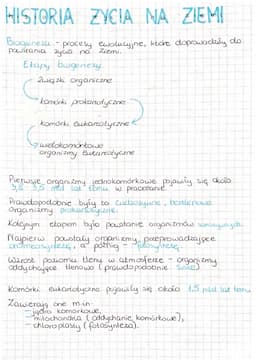 HISTORIA ŻYCIA NA ZIEMI
Biogeneza - procesy ewolucyjne, które doprowadziły do
powstania życia na Ziemi.
Etapy biogenezy:
związki organiczne
komórki prokariotyczne
komórki eukariotyczne
wielokomórkowe
organizmy eukariotyczne
Pierwsze organizmy jednokomórkowe pojawiły się około
mld lat temu w praoceanie.
Prawdopodobnie były to cudzożywne, beztlenowe
organizmy prokariotyczne.
Kolejnym etapem było powstanie organizmów samożywnych.
Najpierw powstały organizmy przeprowadzające
chemosyntezę, a później - fotosyntezę.
Wzrost poziomu tlenu w atmosferze - organizmy
oddychające tlenowo (prawdopodobnie sinice)
Komórki eukariotyczne pojawiły się około 1,5 mld lat temu
Zawierają one m.in.
- jądro komórkowe,
- mitochondria (oddychanie komórkowe),
- chloroplasty (fotosynteza).